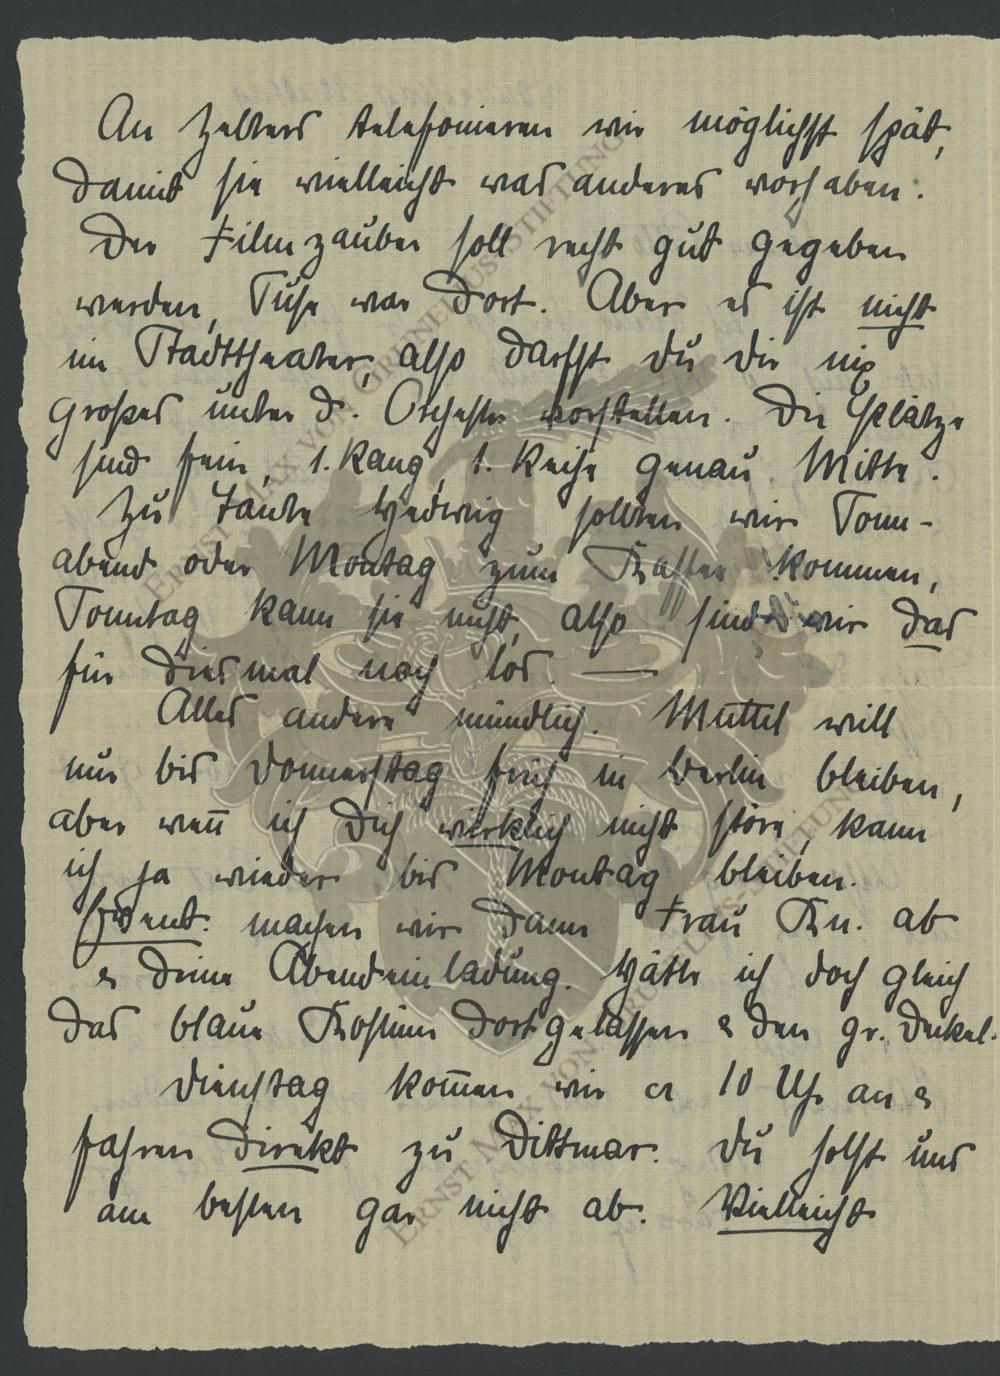 An Zelters telefonieren wir möglichst spät,
damit sie vielleicht was anderes vorhaben.
Der Filmzauber soll recht gut gegeben
werden, Suse war dort. Aber es ist nicht
im Stadttheater, also darfst Du Dir nix
Großes unter d. Orchester vorstellen. Die Plätze
sind fein, 1. Rang, 1. Reihe genau Mitte.
Zu Tante Hedwig sollten wir Sonn-
abend oder Montag zum Kaffee kommen,
Sonntag kann sie nicht, also sind wir das
für diesmal noch los. —
Alles andere mündlich. Muttel will
nur bis Donnerstag früh in Berlin bleiben,
aber weñ ich Dich wirklich nicht störe, kann
ich ja wieder bis Montag bleiben.
Event. machen wir dann Frau Kn. ab
& Deine Abendeinladung. Hätte ich doch gleich
das blaue Kostüm dort gelassen & den gr. Deckel.
Dienstag kom̄en wir cr 10 Uhr an &
fahren direkt zu Dittmar. Du holst uns
am besten gar nicht ab. Vielleicht
ERNST MAX VON GRUNELIUS-STIFTUNG
ERNST MAX VON GRUNELIUS-STIFTUNG